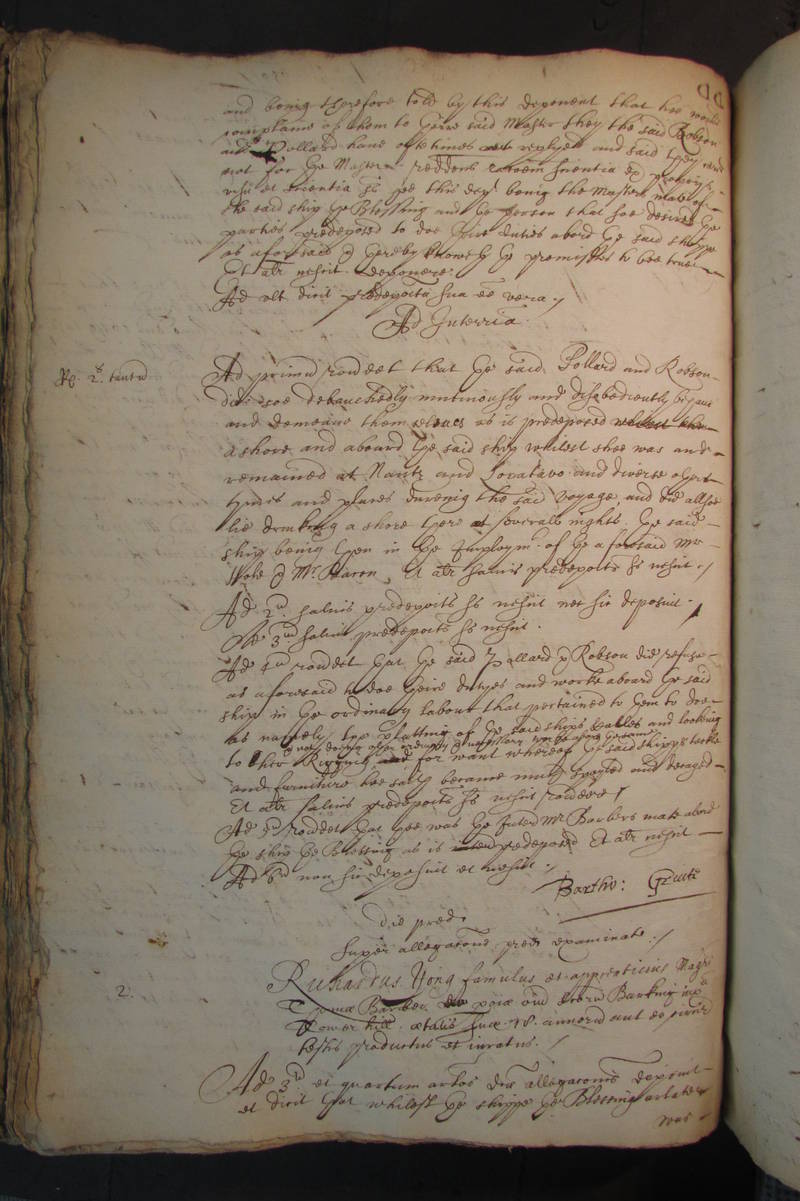 and being therefore told by this deponent that hee would
complaine of them to theire said Master they the said Robson
and Pollard have oftetimes replyed and said they care
not for the Master reddens rationem scientiæ ex
visu et scientia hee this dept being the Masters mate of
the said ship the Blessing and the person that soe desired the
parties predeposed to doe their duties abord the said shipp
as aforesaid & thereby knoweth the premisses to bee true
Et alr nescit deponere.
Ad ult. dicit predeposita sua esse vera./
Ad Interria.
Rp. 2s. tantu
Ad primu rondet that the said Pollard and Robson
did soe debauchedly mutinously and disobediently behave
and demeane them selves as is predeposed
a shore and aboard the said ship whilest shee was and
remained at Nantz and and diverse other
tymes and places dureing the said voyage and did allsoe
lie drinking a shore there severall nights the said
ship being then in the Employmt. of the aforesaid Mr
& Mr. Et alr salvis predepositis suis nescit./
Ad 2u. salvis predepositis suis nescit nec sic deposuit.
Ad 3um salvis predepositis suis nescit.
Ad 4u rondet that the said Pollard & Robson did refuse
as aforesaid to doe theire dutyes and worke aboard the said
ship in the ordinary labour that pertained to them to doe
as namely the platting of the said ships Cables and looking
to ther Rigging for want whereof the said shipps tackle
and furniture hee saith became much and decayed
Et alr salvis predepositis suis nescit rondere
Ad 5u rondet that hee was the Interd Mr Barbers mate abord
the ship the Blessing as is predeposed Et alr nescit
Ad 6u non sic deposuit et nescit./
Bartho:
die pred.
super allegatone pred examinatus./
2.
Richardus Yong famulus et apprenticius Magri
Thomæ Barber poiæ omn Storu Barking iuxa
Tower hill ætatis suæ 18. annoru aut eo circiter
testis productus et iuratus./
Ad 3u et quartum artos dcæ allegatonis deponit
et dicit that whilest the shippe the Blessing arlate
was